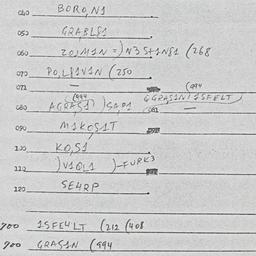 040 BORO,N1
050 GRABL81
060 ZO,M1N =)N35+1N81 (268
070 PO,L81V1N (250
071 — (494
080 AGRAS1) )SAP1 GGRAS1N) 1SFELT)
081 —
090 M1KOS1T
100 KO,S1
110 )V1GL1 )-FURK3
120 SE4RP
700 1SFE4LT (212 (408
900 GRAS1N (494